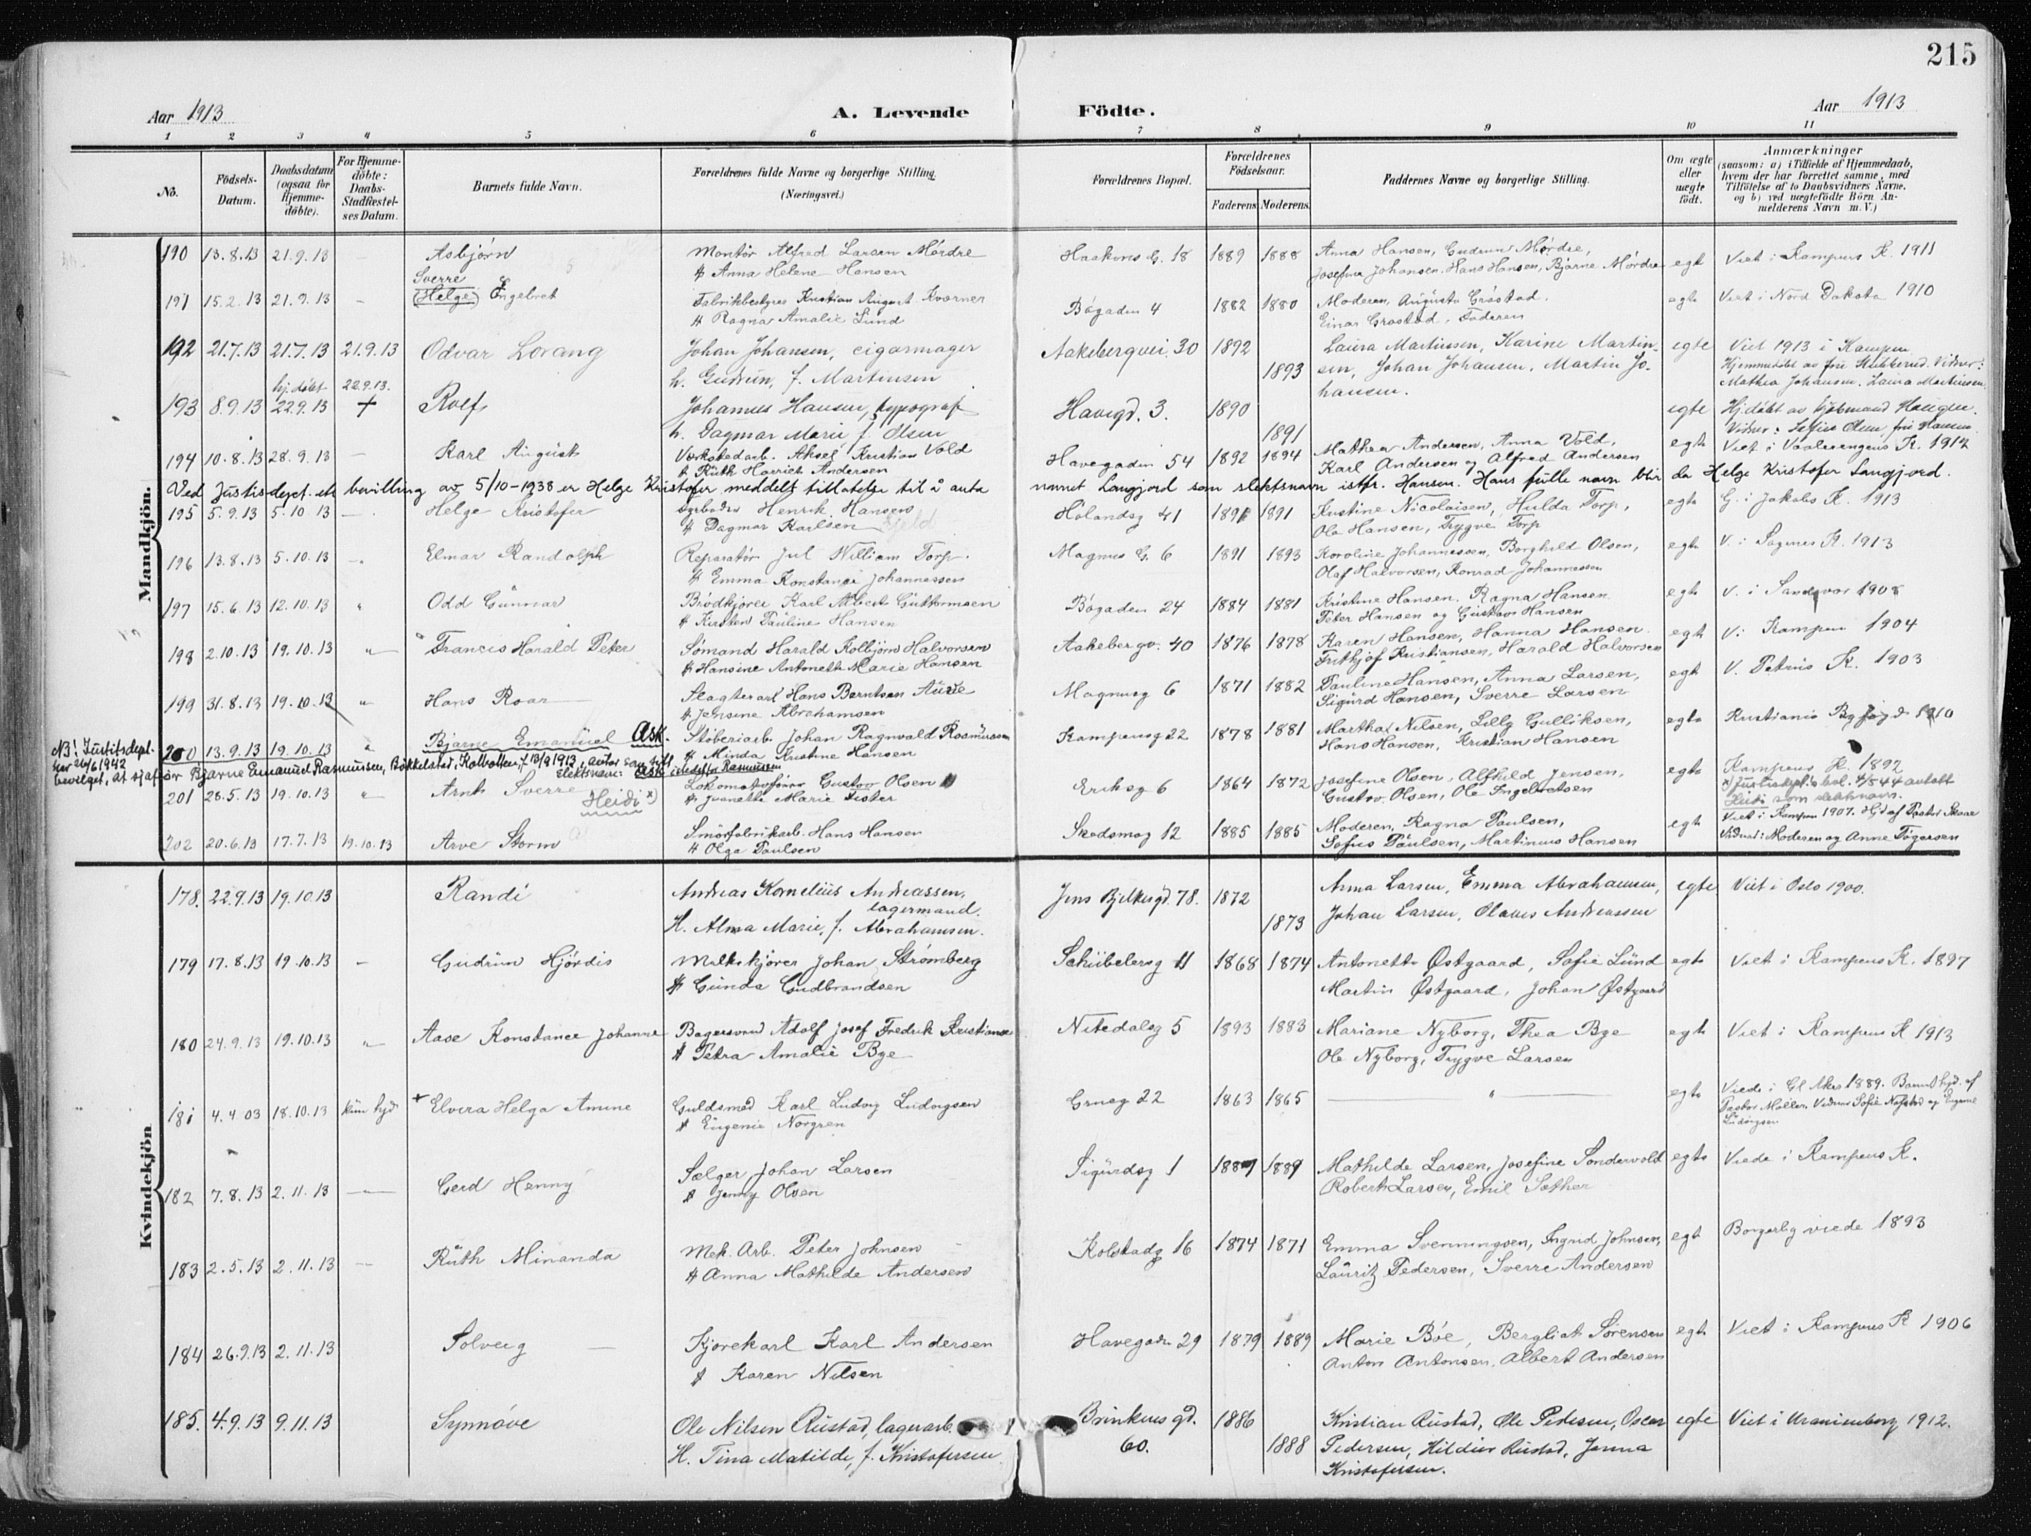 215
Aar 1913 A. Levende Födte. Aar 1913
1 2 3 4 5 6 7 8 9 10 11
No.
Födsels-Datum.
Daabsdatum (ogsaa for Hjemme-döbte).
For Hjemme-döbte: Daabs-Stadfæstel-ses Datum.
Barnets fulde Navn.
Forældrenes fulde Navne og borgerlige Stilling (Næringsvei.)
Forældrenes Bopæl.
Forældrenes Födselsaar.
Faderens. Moderens.
Faddernes Navne og borgerlige Stilling.
Om ægte eller uægte födt.
Anmærkninger
(saasom: a) i Tilfælde af Hjemmedaab,
hvem der har forrettet samme, med
Tilföielse af to Daabsvidners Navne,
og b) ved uægtefödte Börn An-
melderens Navn m. V.)
Mandkjön.
190 13.8.13 21.9.13 – Asbjørn Montør Alfred Larsen Mórdre Haakons G. 18 1889 1888 Anna Hansen, Gudrun Mørdre, egt Viet i Kampens K. 1911
H Anna Helene Hansen Josefine Johansen. Hans Hansen, Bjarne Mórdre
Sverre
191 15.2.13 21.9.13 – (Helge) Engelbret Fabrikbestyrer Kristian August Kværner Bøgaden 4 1882 1880 Moderen, Augusta Gróstad. egte Viet i Nord Dakota 1910
H Ragna Amalie Lund Einar Grostad. Faderen
192 21.7.13 21.7.13 21.9.13 Odvar Lorang Johan Johansen, cigarmager Aakebergvei. 30 1892 Laura Martinsen, Karine Martin- egte Viet 1913 i Kampen
H. Gudrun, f. Martinsen 1893 sen, Johan Johansen, Martin Jo- Hjemmedøbt av fru Stubberud. Vidner:
hansen. Mathea Johansen, Laura Martinsen.
hj.døbt 22.9.13.
193 8.9.13 22.9.13 + Rolf Johannes Hansen, typograf Havegd. 3. 1890 egte Hj.døbt av
h. Dagmar Marie f. Olsen 1891 Vidner: Olsen fru Hansen.
194 10.8.13 28.9.13 – Karl August Værkstedarb. Aksel Kristian Vold Havegaden 54 1892 1894 Mathea Andersen, Anna Vold, egt Viet i Vaalerengens K. 1912
H Ruth Harriet Andersen Karl Andersen og Alfred Andersen
Ved Justisdept. et bevilling av 5/10-1938 er Helge Kristofer meddelt tillatelse til å anta navnet Langjord som slektsnavn istf. Hansen. Hans fulle navn blir da Helge Kristofer Langjord.
195 5.9.13 5.10.13 – Helge Kristofer Henrik Hansen Hólandsg 41 1891 1891 Kristine Nicolaisen, Hulda Torp, egt G. i Jakobs K. 1913
H Dagmar Karlsen Ole Hansen, Trygve Torp
196 13.8.13 5.10.13 " Elmar Randolph Reparatør Jul William Torp. Magnus G. 6 1891 1893 Karoline Johannessen, Borghild Olsen, egt V. i Sagenes K. 1913
H Emma Konstance Johannessen Olaf Halvorsen, Konrad Johannessen
197 15.6.13 12.10.13 " Odd Gunnar Brødkjører Karl Albert Guttormsen Bøgaden 24 1884 1881 Kristine Hansen. Ragna Hansen egt V. i Sandsvær 1905
H Kirsten Pauline Hansen Peter Hansen og Gustav Hansen
198 2.10.13 19.10.13 " Francis Harald Peter Sømand Harald Kolbjørn Halvorsen Aakebergv. 40 1876 1878 Karen Hansen, Hanna Hansen. egt V. i Kampen 1904
H Hansine Antonette Marie Hansen Fritkjof Kristiansen, Harald Halvorsen
199 31.8.13 19.10.13 " Hans Roar Slagterarb Hans Berntsen Aune Magnusg 6 1871 1882 Pauline Hansen, Anna Larsen, egt V. Petrus K. 1903
H Jensine Abrahamsen Sigurd Hansen, Sverre Larsen
200 13.9.13 19.10.13 " Bjarne Emanuel Ask. Støberiarb Johan Ragnvald Rasmussen Kampensg 22 1878 1881 Martha Nilsen, Lilly Gulliksen, egte Kristiania Byfogd 1910
H Minda Kristine Hansen Hans Hansen, Kristian Hansen
NB! Justitsdept. har 26/6 1942 bevilget, at sjafør Bjarne Emanuel Rasmussen, Bøkkelstad, Kolbotten, f. 13/9 1913, antar som sitt slektsnavn: Ask istedetfor Rasmussen
201 28.5.13 19.10.13 " Arnt Sverre Heidi x) Lokomotivfører Gustav Olsen Eriksg 6 1864 1872 Josefine Olsen, Alfhild Jensen, egte Kampens K. 1892
H Jeanette Marie Lister Gustav Olsen, Ole Ingebretsen x) Justisdept.s bev. 4/5 44 antatt
Heidi som slektnavn.
202 20.6.13 17.7.13 19.10.13 Arve Storm Smørfabrikarb. Hans Hansen Skedsmog 12 1885 1885 Moderen, Ragna Paulsen, egt Viet i Kampen 1907. Hjd af Pastor Skaar
H Olga Paulsen Sofus Paulsen, Martinius Hansen Vidner: Moderen og Anne Tøgersen
Kvindekjön
178. 22.9.13 19.10.13 Randi Andreas Kornelius Andreassen, Jens Bjelkesgd. 78. 1872 Anna Larsen, Emma Abrahamsen, egte Viet i Oslo 1900.
lagermand.
H. Alma Marie, f. Abrahamsen. 1873 Johan Larsen, Olaves Andreassen
179 17.8.13 19.10.13 – Gudrun Hjördis Melkekjører Johan Strømberg Schübelersg 11 1868 1874 Antonette Østgaard, Sofie Lund egte Viet i Kampens K. 1897
H Gunda Gudbrandsen Martin Østgaard, Johan Østgaard
180 24.9.13 19.10.13 " Aase Konstance Johanne Bagersvend Adolf Josef Fredrik Kristiansen Nitedalsg 5 1893 1883 Mariane Nyborg, Thea Bye egt Viet i Kampens K 1913
H Petra Amalie Bye Ole Nyborg, Trygve Larsen
181 4.4.03 18.10.13 kun hjd + Elvira Helga Amine Guldsmed Karl Ludvig Ludvigsen Grüneg 22 1863 1865 " egte Viede i Gl Aker 1889. Barnet hjd. af
H Eugenie Norgren Pastor Møller. Vidner Sofie Næstad og Eugenie
Ludvigsen
182 7.8.13 2.11.13 – Gerd Henny Sælger Johan Larsen Sigurdsg 1 1887 1889 Mathilde Larsen, Josefine Sondervold egte Viede i Kampens K.
H Jenny Olsen Robert Larsen, Emil Sæther
183 2.5.13 2.11.13 – Ruth Minanda Mek. Arb. Peter Johnsen Kolstadg 16 1874 1871 Emma Svenningsen, Ingrid Johnsen, egt Borgerlig viede 1893
H Anna Mathilde Andersen Lauritz Pedersen, Sverre Andersen
184 26.9.13 2.11.13 Solveig Kjørekarl Karl Andersen Havegadn 29 1879 1889 Marie Bøe, Bergliot Sørensen egt Viet i Kampens K 1906
H Karen Nilsen Anton Antonsen, Albert Andersen
185. 4.9.13 9.11.13 Synnøve Ole Nilsen Rustad, lagerarb. Brinkens gd. 1886 Kristian Rustad, Ole Pedersen, Oscar egte Viet i Uranienborg 1912.
H. Tina Matilde, f. Kristofersen. 60. 1888 Pedersen, Hildur Rustad, Jenna
Kristofersen.